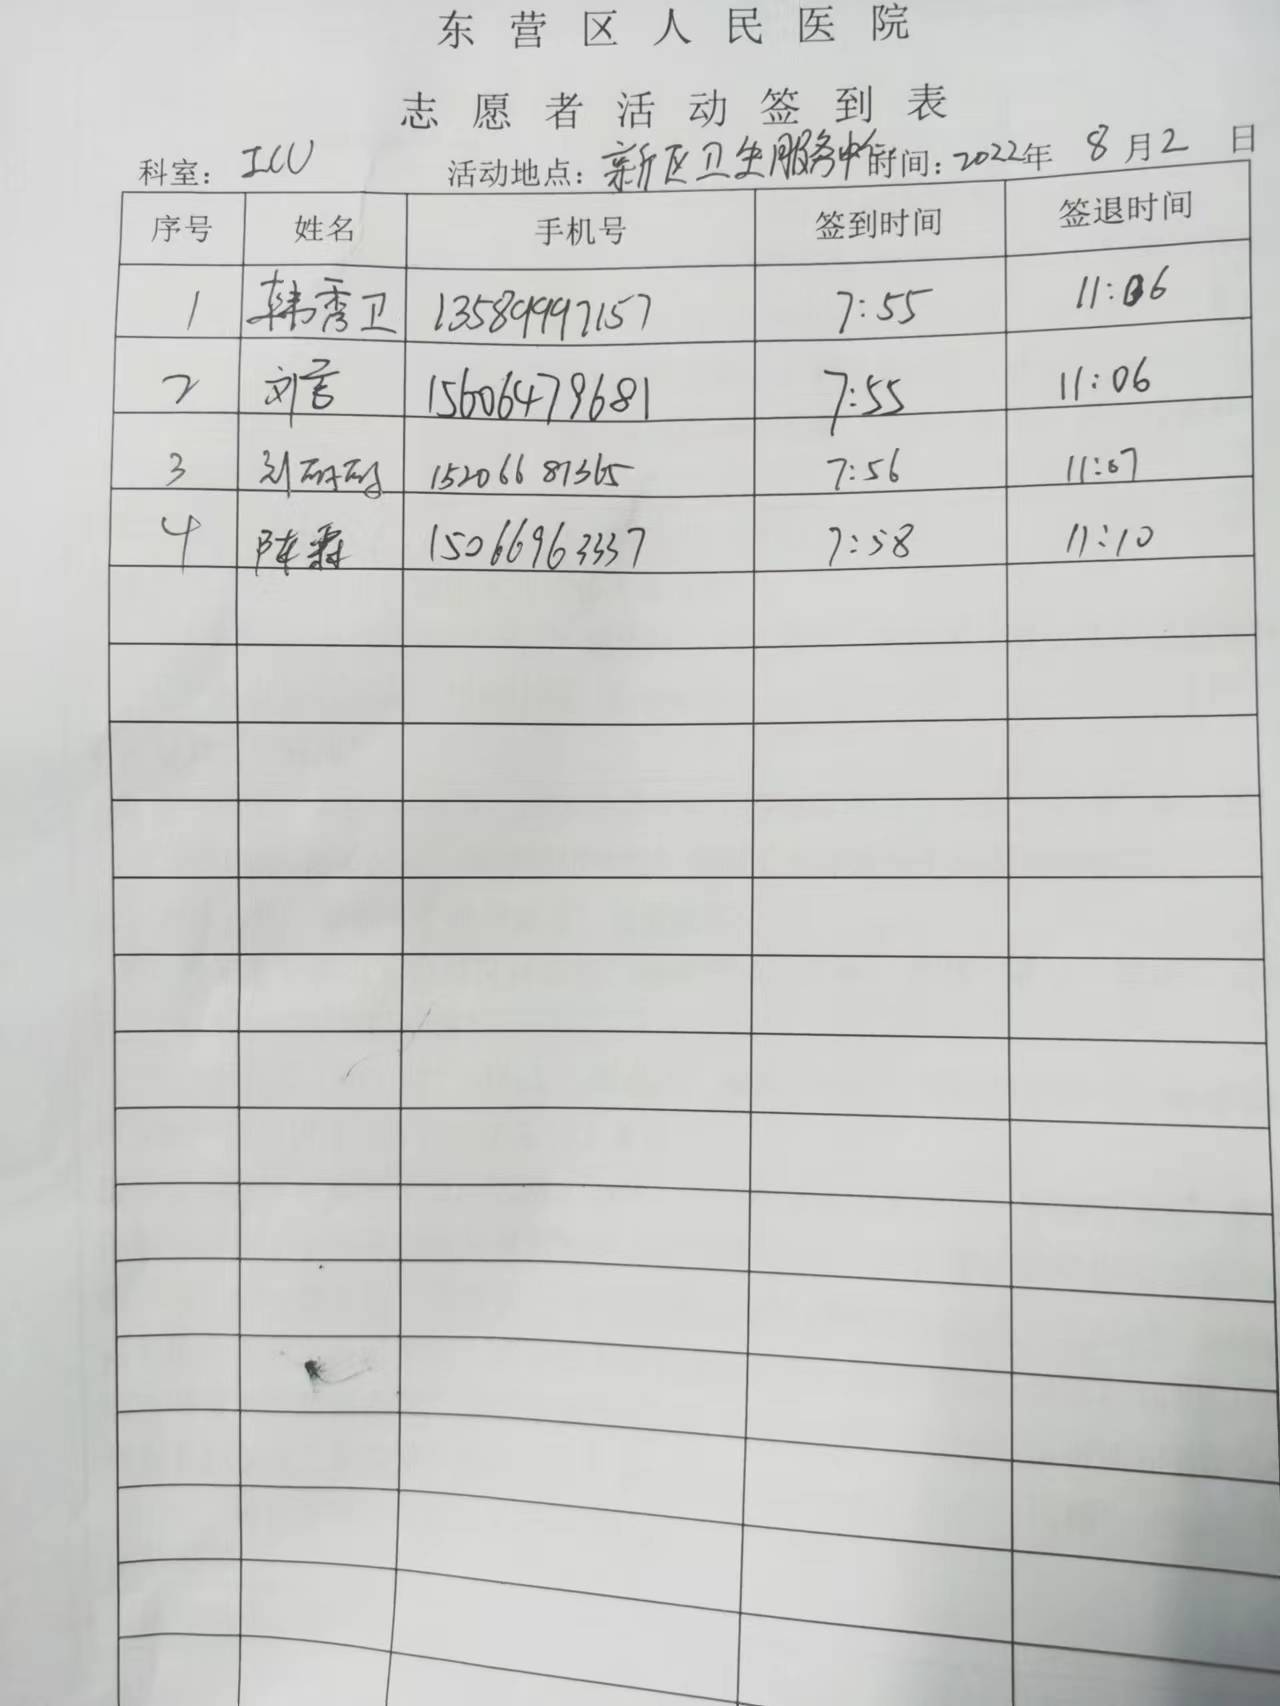 东营区人民医院
志愿者活动签到表
科室：ICU 活动地点：新区卫生服务中心 时间：2022年8月2日
序号 姓名 手机号 签到时间 签退时间
1 韩秀卫 13589997157 7:55 11:06
2 刘言 15606479681 7:55 11:06
3 刘丽丽 15206681365 7:56 11:07
4 陈霖 15066963337 7:58 11:10